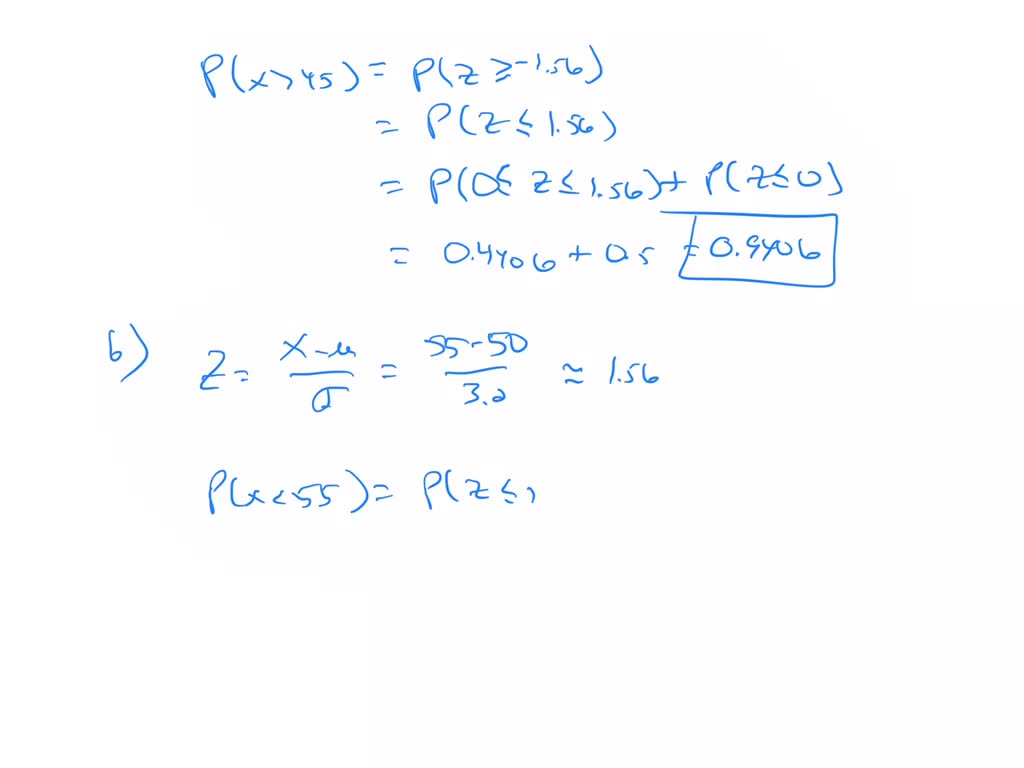 P(x>45) = P(z ≥ -1.56)
= P(z ≤ 1.56)
= P(0≤ z ≤ 1.56)+ P(z≤0)
= 0.4406 + 0.5 = 0.9406
b) z = x-μ/σ = 55-50/3.2 ≈ 1.56
P(x<55) = P(z ≤